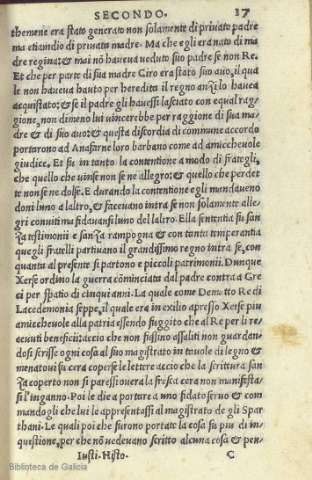 SECONDO. 17
themene era stato generato non solamente di privato padre
ma etiandio di privata madre. Ma che egli era nato di ma
dre regina: & mai nõ haveva veduto suo padre se non Re.
Et che per parte di sua madre Ciro era stato suo avo, il qua
le non haveva havto per heredita il regno anzi lo haveva
acquistato: & se il padre gli havessi lasciato con equal rag
gione, non dimeno lui vincerebbe per raggione di sua ma
dre & di suo avo: & questa discordia di commune accordo
portorono ad Anafarne loro barbano come ad amichevole
giudice. Et fu in tanto la contentione a modo di frategli,
che quello che vinse non se ne allegro: & quello che perdet
te non se ne dolse. E durando la contentione egli mandaveno
doni luno a laltro, & facevano intra se non solamente alle
gri conviti ma fidavansi luno del laltro. Ella sententia fu san
za testimonii e sanza rampogna & con tanta temperantia
que gli frategli partivano il grandissimo regno intra se, con
quanta al presente si partono e piccoli patrimonii. Dunque
Xerse ordino la guerra cõminciata dal padre contra a Gre
ci per spatio di cinque anni. La quale come Demutto Re di
Lacedemonia seppe, il quale era in exilio apresso Xerse piu
amichevole alla patria essendo fuggito che al Re per li re=
cevuti beneficii: accio che non fussino assaliti non guardan=
dosi scrisse ogni cosa al suo magistrato in tavole di legno &
menatovi su cera coperse le lettere accio che la scrittura san
za coperto non si paressi overa la fresca cera non manifesta
si l'inganno. Poi le die a portare a uno fidato servo & com
mandogli che lui le appresentassi al magistrato de gli Spar
thani. Le quali poi che furono portate la cosa fu piu di in=
questione, per che nõ vedevano scritto alcuna cosa & pen=
Iusti. Histo. C
Biblioteca de Galicia